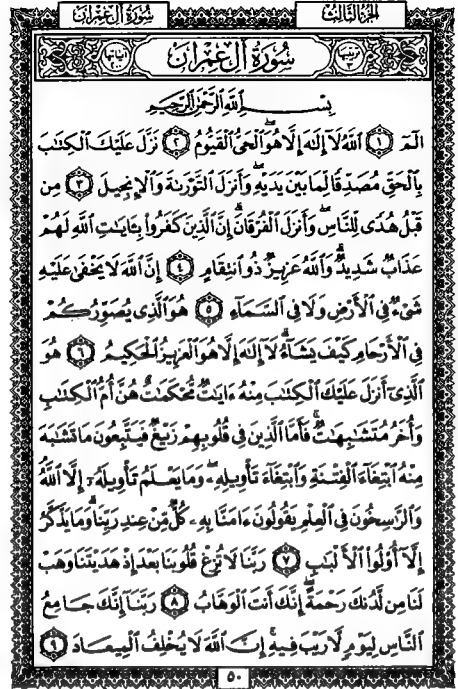 سُورَةُ آلِ عِمْرَانَ
الجُزْءُ الثَّالِثُ
سُورَةُ آلِ عِمْرَانَ
بِسْمِ ٱللَّهِ ٱلرَّحْمَٰنِ ٱلرَّحِيمِ
الٓمٓ ١ ٱللَّهُ لَآ إِلَٰهَ إِلَّا هُوَ ٱلْحَىُّ ٱلْقَيُّومُ ٢ نَزَّلَ عَلَيْكَ ٱلْكِتَٰبَ
بِٱلْحَقِّ مُصَدِّقًا لِّمَا بَيْنَ يَدَيْهِ وَأَنزَلَ ٱلتَّوْرَىٰةَ وَٱلْإِنجِيلَ ٣ مِن
قَبْلُ هُدًى لِّلنَّاسِ وَأَنزَلَ ٱلْفُرْقَانَ ۗ إِنَّ ٱلَّذِينَ كَفَرُوا۟ بِـَٔايَٰتِ ٱللَّهِ لَهُمْ
عَذَابٌ شَدِيدٌ ۗ وَٱللَّهُ عَزِيزٌ ذُو ٱنتِقَامٍ ٤ إِنَّ ٱللَّهَ لَا يَخْفَىٰ عَلَيْهِ
شَىْءٌ فِى ٱلْأَرْضِ وَلَا فِى ٱلسَّمَآءِ ٥ هُوَ ٱلَّذِى يُصَوِّرُكُمْ
فِى ٱلْأَرْحَامِ كَيْفَ يَشَآءُ ۚ لَآ إِلَٰهَ إِلَّا هُوَ ٱلْعَزِيزُ ٱلْحَكِيمُ ٦ هُوَ
ٱلَّذِىٓ أَنزَلَ عَلَيْكَ ٱلْكِتَٰبَ مِنْهُ ءَايَٰتٌ مُّحْكَمَٰتٌ هُنَّ أُمُّ ٱلْكِتَٰبِ
وَأُخَرُ مُتَشَٰبِهَٰتٌ ۖ فَأَمَّا ٱلَّذِينَ فِى قُلُوبِهِمْ زَيْغٌ فَيَتَّبِعُونَ مَا تَشَٰبَهَ
مِنْهُ ٱبْتِغَآءَ ٱلْفِتْنَةِ وَٱبْتِغَآءَ تَأْوِيلِهِۦ ۗ وَمَا يَعْلَمُ تَأْوِيلَهُۥٓ إِلَّا ٱللَّهُ
وَٱلرَّٰسِخُونَ فِى ٱلْعِلْمِ يَقُولُونَ ءَامَنَّا بِهِۦ كُلٌّ مِّنْ عِندِ رَبِّنَا ۗ وَمَا يَذَّكَّرُ
إِلَّآ أُو۟لُوا۟ ٱلْأَلْبَٰبِ ٧ رَبَّنَا لَا تُزِغْ قُلُوبَنَا بَعْدَ إِذْ هَدَيْتَنَا وَهَبْ
لَنَا مِن لَّدُنكَ رَحْمَةً ۚ إِنَّكَ أَنتَ ٱلْوَهَّابُ ٨ رَبَّنَآ إِنَّكَ جَامِعُ
ٱلنَّاسِ لِيَوْمٍ لَّا رَيْبَ فِيهِ ۚ إِنَّ ٱللَّهَ لَا يُخْلِفُ ٱلْمِيعَادَ ٩
٥٠